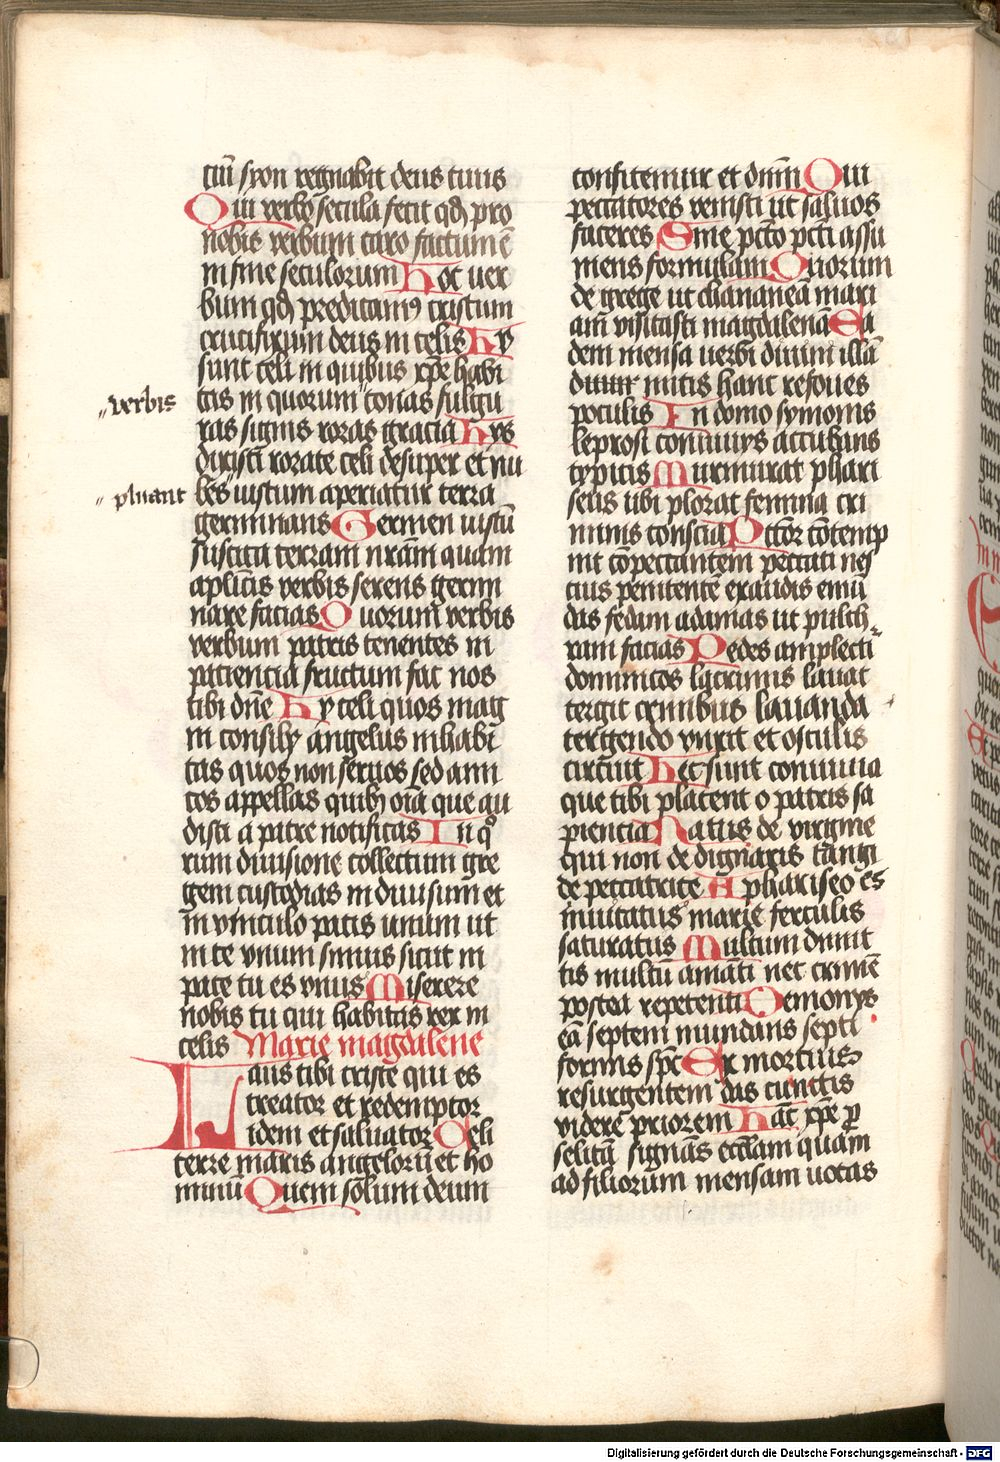 ciū syon regnabit deus tuus
Qui verbo secula fecit qđ pro
nobis verbum caro factum ē
in fine seculorum Hoc ver
bum qđ predicamꝰ cristum
crucifixum deus in celis Hy
sunt celi in quibus xp̄e habi
tas in quorum tonas fulgu
„verbis
ras signis roras gracia Hys
dixisti rorate celi desuper et nu
bes iustum aperiatur terra
„pluant
germinans Germen iustū
suscita terram nr̄am quam
ap̄licis verbis serens germi
nare facias Quorum verbis
verbum patris tenentes in
paciencia fructum fac nos
tibi dn̄e Hy celi quos mag
ni consilij angelus inhabi
tas quos non seruos sed ami
cos appellas quibꝫ oīa que au
disti a patre notificas In qͦ
rum diuisione collectum gre
gem custodias indiuisum et
in vinculo pacis unum ut
in te vnum simus sicut in
patre tu es vnus Miserere
nobis tu qui habitas rex in
celis Marie magdalene
Laus tibi criste qui es
creator et redemptor
idem et saluator Celi
terre maris angelorū et ho
minū Quem solum deum
confitemur et dn̄m Qui
peccatores venisti ut saluos
faceres Sine pctō pcti assu
mens formulam Quorum
de grege ut chananeā mari
am visitasti magdalenā Ea
dem mensa uerbi diuini illā
diuur mitis hanc refoues
poculis In domo symonis
leprosi conuiuiys accubans
typicis Murmurat phari
seus ubi plorat femina cri
minis conscia Pctōr cōtemp
nit cōpeccantem peccati nes
cius penitentē exaudis emū
das fedam adamas ut pulch„
ram facias Pedes amplecti
dominicos lacrimis lauat
tergit crinibus lauanda
tergendo vnxit et osculis
circuit Hec sunt conuiuia
que tibi placent o patris sa
piencia Natus de virgine
qui non de dignaris tangi
de peccatrice A phariseo es
inuitatus marie ferculis
saturatus Multum dimit
tis multū amāti nec crimē
postea repetenti Demonys
eā septem mundans septi
formis sp̄c Ex mortuis
resurgentem das cunctis
videre priorem Hac xp̄e p̱
selitā signās eccl̄am quam
ad filiorum mensam uocas